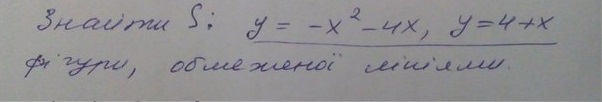 Знайти S: y = -x² - 4x, y = 4 + x
фігури, обмеженої лініями.